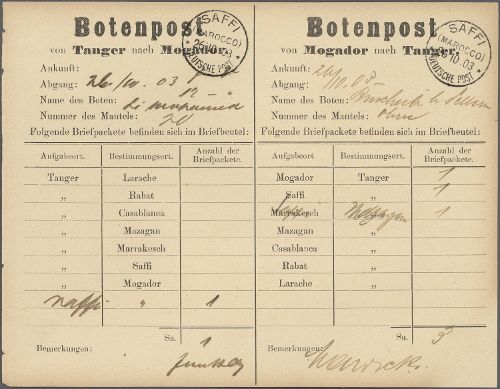 Botenpost
von Tanger nach Mogador.
SAFFI
(MAROCCO)
DEUTSCHE POST
Ankunft:
Abgang: 26/10. 03
12
Name des Boten:
Nummer des Mantels: 20
Folgende Briefpackete befinden sich im Briefbeutel:
Aufgabeort. Bestimmungsort. Anzahl der Briefpackete.
Tanger Larache
„ Rabat
„ Casablanca
„ Mazagan
„ Marrakesch
„ Saffi
„ Mogador
Saffi „ 1
Sa. 1
Bemerkungen:
Botenpost
von Mogador nach Tanger.
SAFFI
(MAROCCO)
26 10. 03
DEUTSCHE POST
Ankunft:
Abgang:
Name des Boten:
Nummer des Mantels:
Folgende Briefpackete befinden sich im Briefbeutel:
Aufgabeort. Bestimmungsort. Anzahl der Briefpackete.
Mogador Tanger 1
Saffi „ 1
Marrakesch Mazagan 1
Mazagan „
Casablanca „
Rabat „
Larache „
Sa. 3
Bemerkungen: